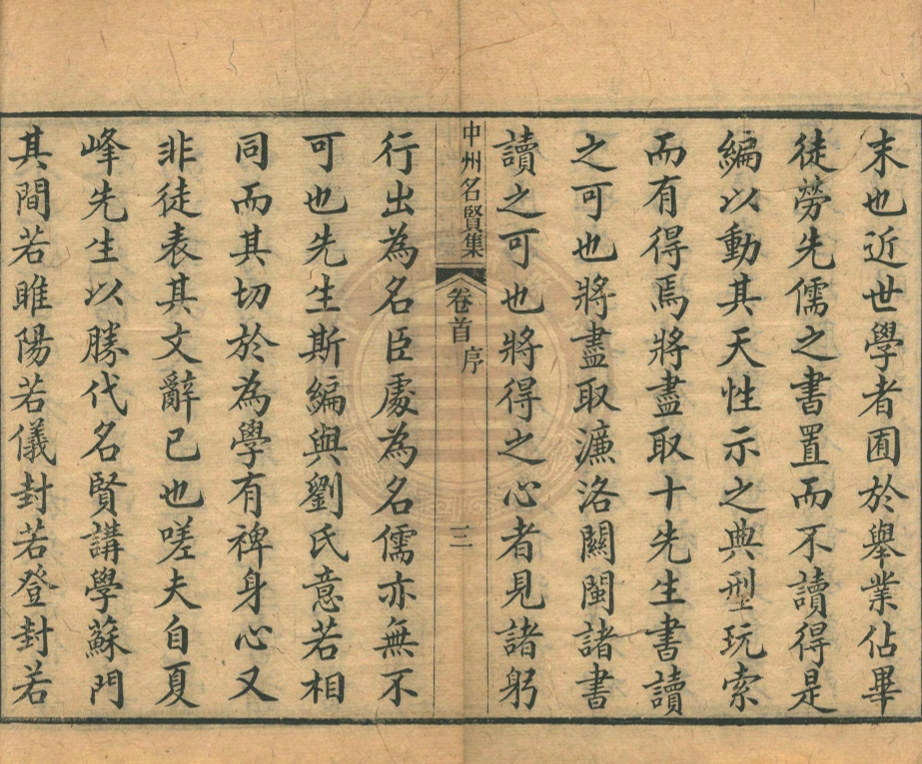 末也近世學者囿於舉業佔畢
徒勞先儒之書置而不讀得是
編以動其天性示之典型玩索
而有得焉將盡取十先生書讀
之可也將盡取濂洛關閩諸書
讀之可也將得之心者見諸躬
中州名賢集 卷首 序 三
行出為名臣處為名儒亦無不
可也先生斯編與劉氏意若相
同而其切於為學有裨身心又
非徒表其文辭已也嗟夫自夏
峰先生以勝代名賢講學蘇門
其間若睢陽若儀封若登封若